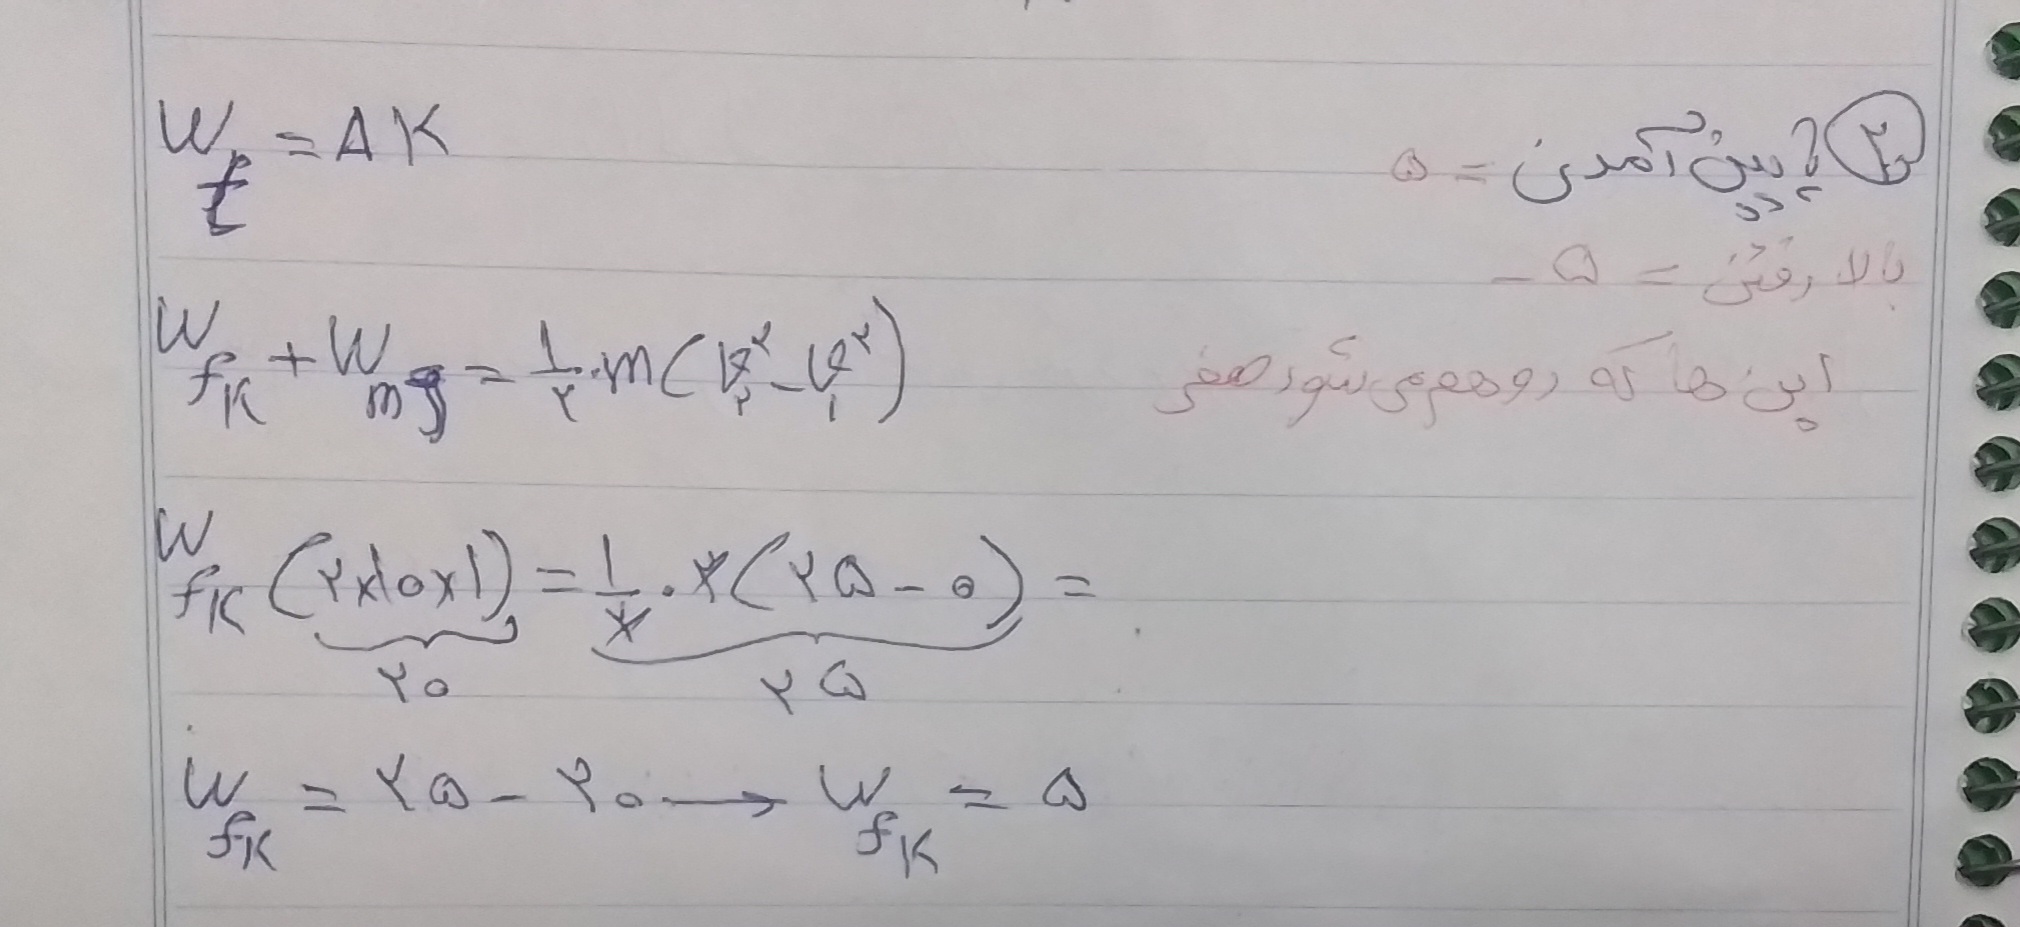 ۲ پایین آمدن = ۵
بالا رفتن = ۵ -
این ها که رو هم می شود صفر
W_t = ΔK
W_fK + W_mg = ۱/۲ . m (v۲^۲ - v۱^۲)
W_fK (۲x۱۰x۱) = ۱/۲ . ۲ (۲۵ - ۰) =
۲۰ ۲۵
W_fK = ۲۵ - ۲۰ → W_fK = ۵